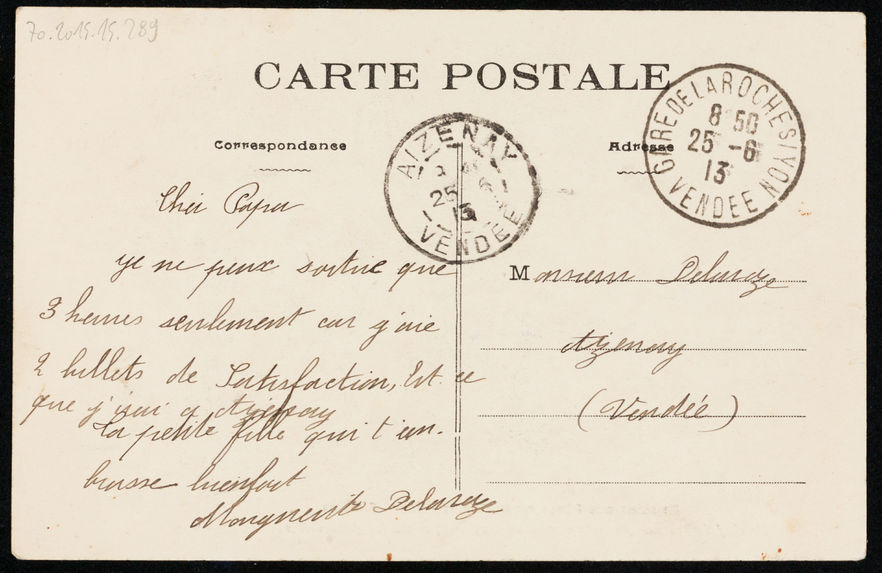 70.2015.15.289
CARTE POSTALE
Correspondance
Adresse
AIZENAY
25 6
13
VENDÉE
GARE DE LA ROCHE S/YON
8 50
25 - 6
13
VENDEE
Cher Papa
je ne peux sortir que
3 heures seulement car j'aie
2 billets de Satisfaction, Est ce
que j'irai a Aizenay
Ta petite fille qui t'em-
brasse bienfort
Marguerite Delaroze
Monsieur Delaroze
Aizenay
(Vendée)